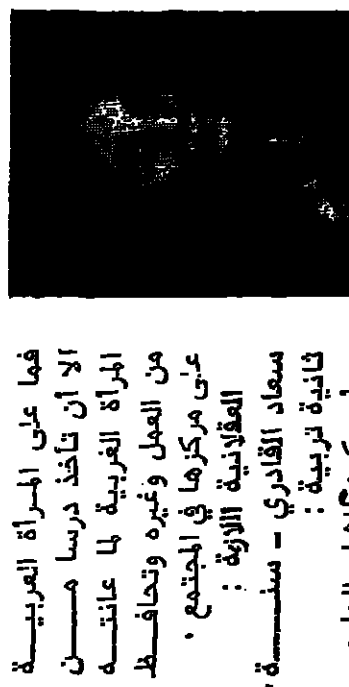 فما على المرأة العربية
الا أن تأخذ درسا من
المرأة الغربية لما عانته
من العمل وغيره وتحافظ
على مركزها في المجتمع .
العقلانية اللازمة :
سعاد القادري - سنة
ثانية تربية :